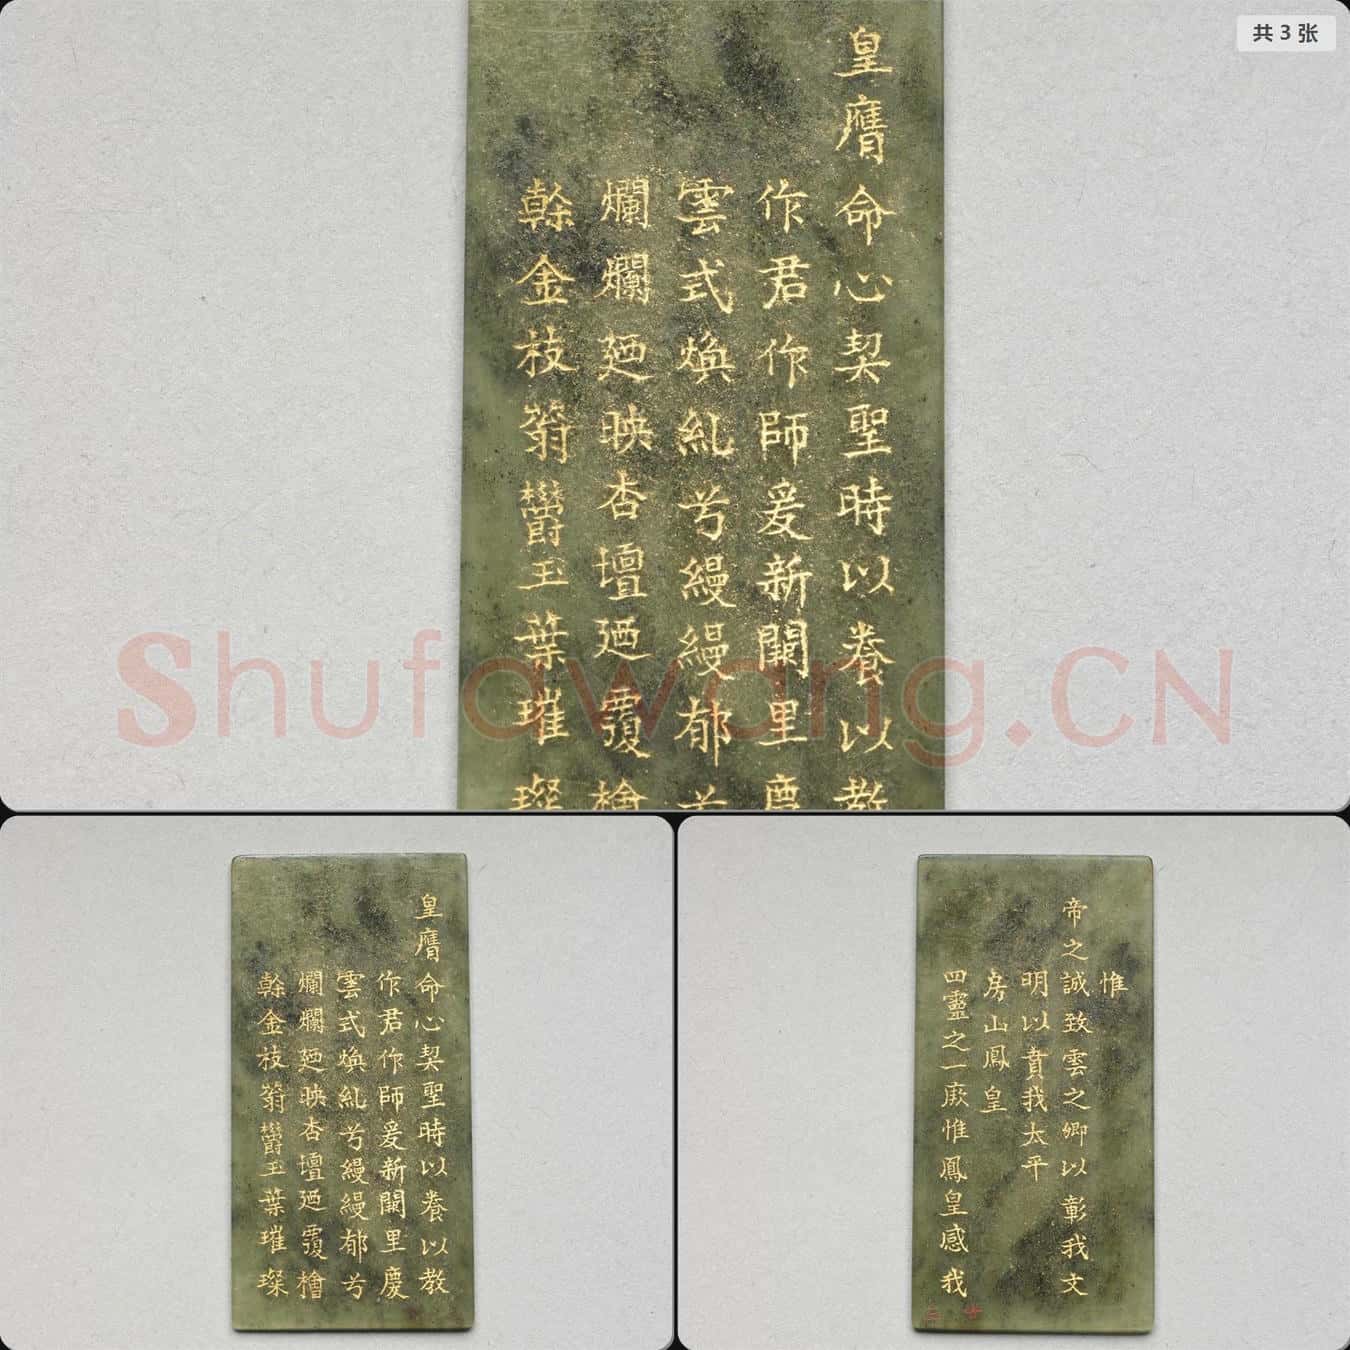 共 3 张
皇膺命心契聖時以養以教
作君作師爰新闕里慶
雲式煥糺兮縵縵郁兮
爛爛廼映杏壇廼覆檜
榦金枝蓊欝玉葉璀璨
Shufawang.CN
皇膺命心契聖時以養以教
作君作師爰新闕里慶
雲式煥糺兮縵縵郁兮
爛爛廼映杏壇廼覆檜
榦金枝蓊欝玉葉璀璨
惟
帝之誠致雲之卿以彰我文
明以賁我太平
房山鳳皇
四靈之一厥惟鳳皇感我